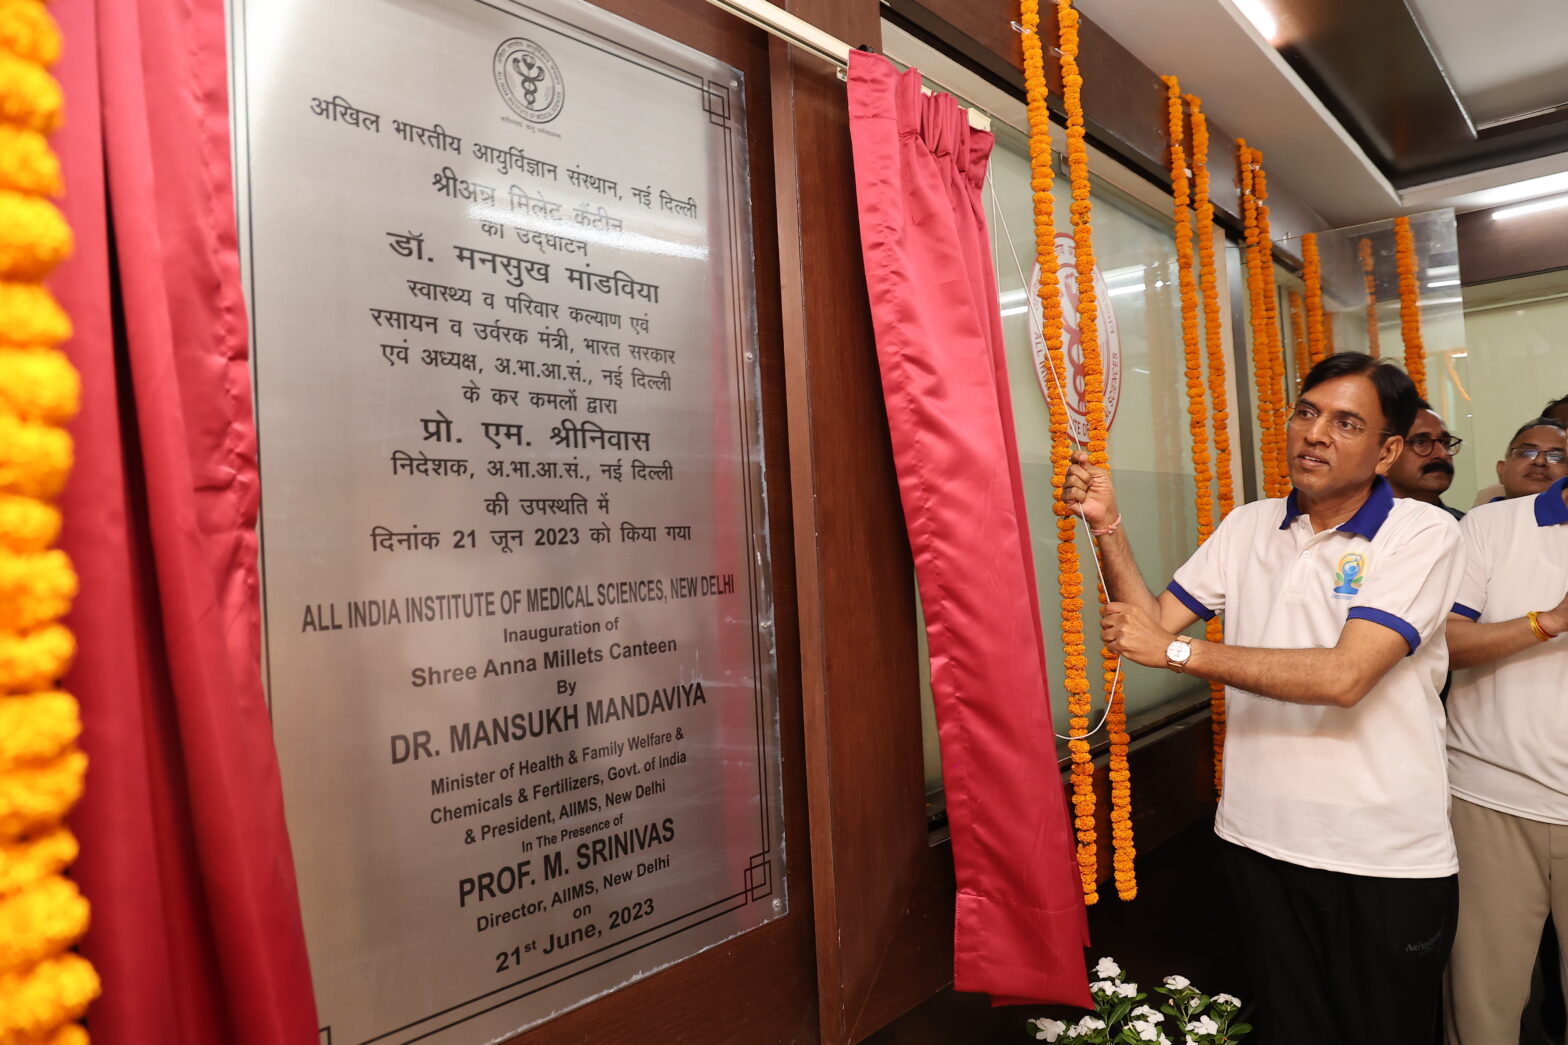 अखिल भारतीय आयुर्विज्ञान संस्थान, नई दिल्ली
श्रीअन्न मिलेट कैंटीन
का उद्घाटन
डॉ. मनसुख मांडविया
स्वास्थ्य व परिवार कल्याण एवं
रसायन व उर्वरक मंत्री, भारत सरकार
एवं अध्यक्ष, अ.भा.आ.सं., नई दिल्ली
के कर कमलों द्वारा
प्रो. एम. श्रीनिवास
निदेशक, अ.भा.आ.सं., नई दिल्ली
की उपस्थति में
दिनांक 21 जून 2023 को किया गया
ALL INDIA INSTITUTE OF MEDICAL SCIENCES, NEW DELHI
Inauguration of
Shree Anna Millets Canteen
By
DR. MANSUKH MANDAVIYA
Minister of Health & Family Welfare &
Chemicals & Fertilizers, Govt. of India
& President, AIIMS, New Delhi
In The Presence of
PROF. M. SRINIVAS
Director, AIIMS, New Delhi
on
21st June, 2023